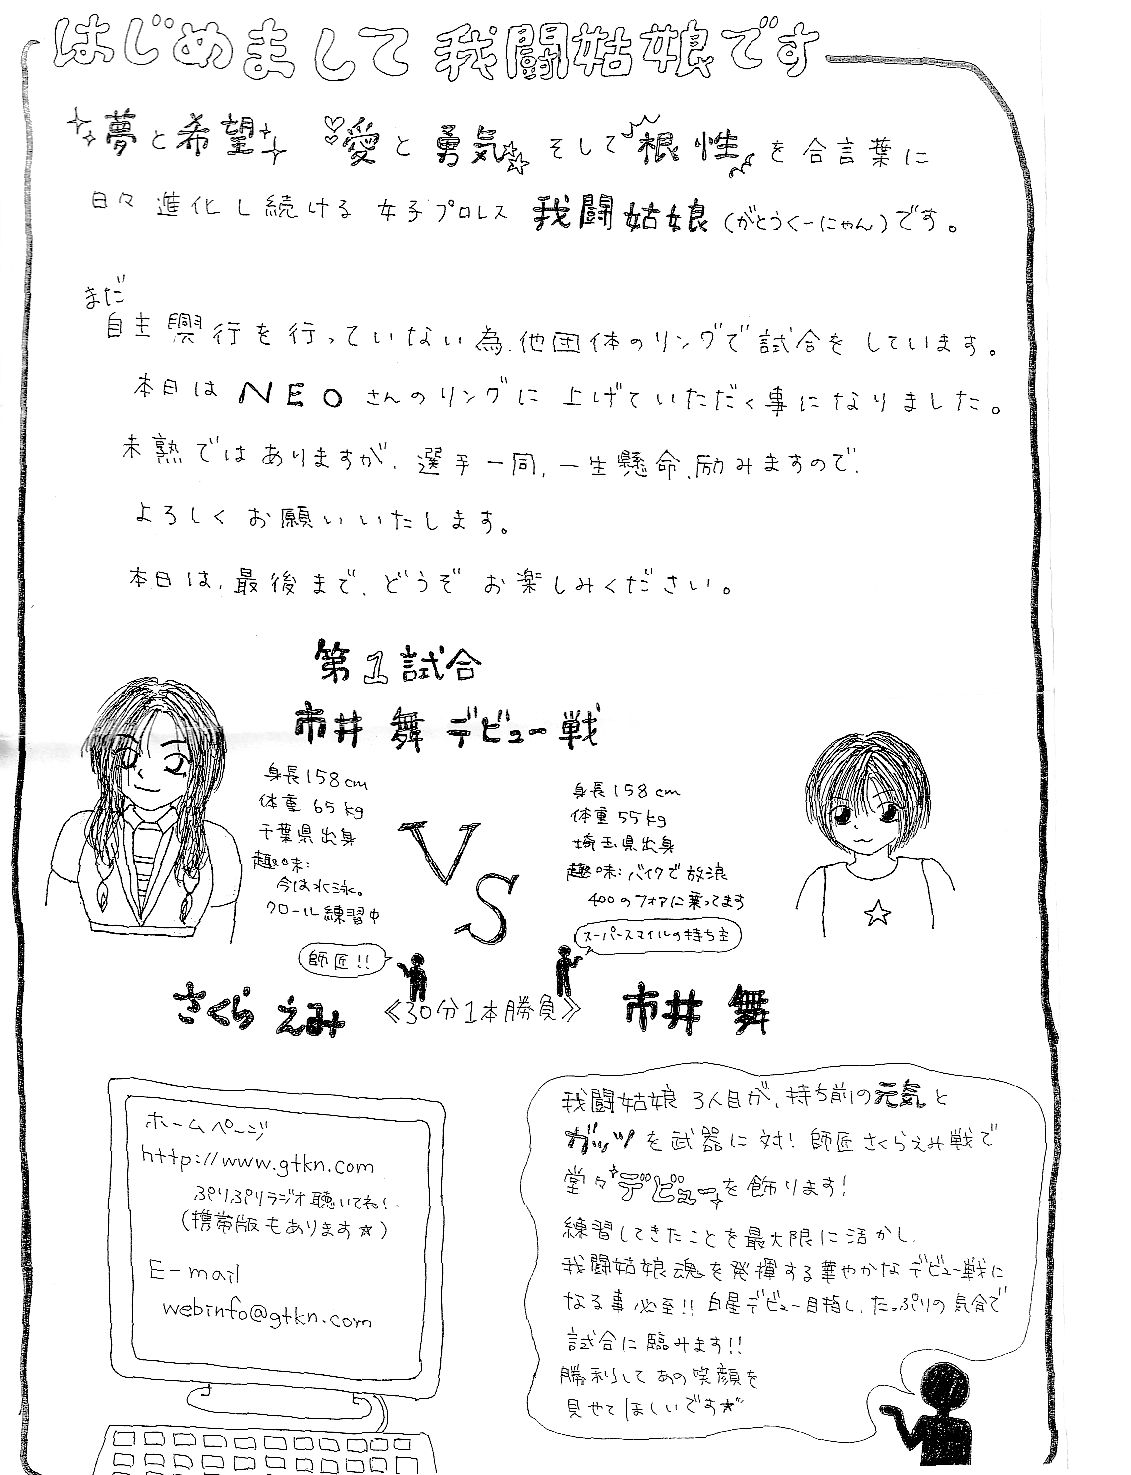 はじめまして 我闘姑娘です
夢と希望 愛と勇気 そして根性を合言葉に
日々進化し続ける女子プロレス 我闘姑娘(がとうくーにゃん)です。
まだ
自主興行を行っていない為、他団体のリングで試合をしています。
本日はNEOさんのリングに上げていただく事になりました。
未熟ではありますが、選手一同、一生懸命、励みますので、
よろしくお願いいたします。
本日は、最後まで、どうぞお楽しみください。
第1試合
市井 舞 デビュー戦
身長158cm
体重 65kg
千葉県出身
趣味:
今は水泳。
クロール練習中
師匠!!
さくら えみ
VS
身長158cm
体重55kg
埼玉県出身
趣味:バイクで放浪
400のフォアに乗ってます
スーパースマイルの持ち主
市井 舞
《30分1本勝負》
ホームページ
http://www.gtkn.com
ぷりぷりラジオ聴いてね!
(携帯版もあります☆)
E-mail
webinfo@gtkn.com
我闘姑娘 3人目が、持ち前の元気と
ガッツを武器に対!師匠さくらえみ戦で
堂々デビューを飾ります!
練習してきたことを最大限に活かし、
我闘姑娘魂を発揮する華やかなデビュー戦に
なる事必至!!白星デビュー目指し、たっぷりの気合で
試合に臨みます!!
勝利してあの笑顔を
見せてほしいです☆